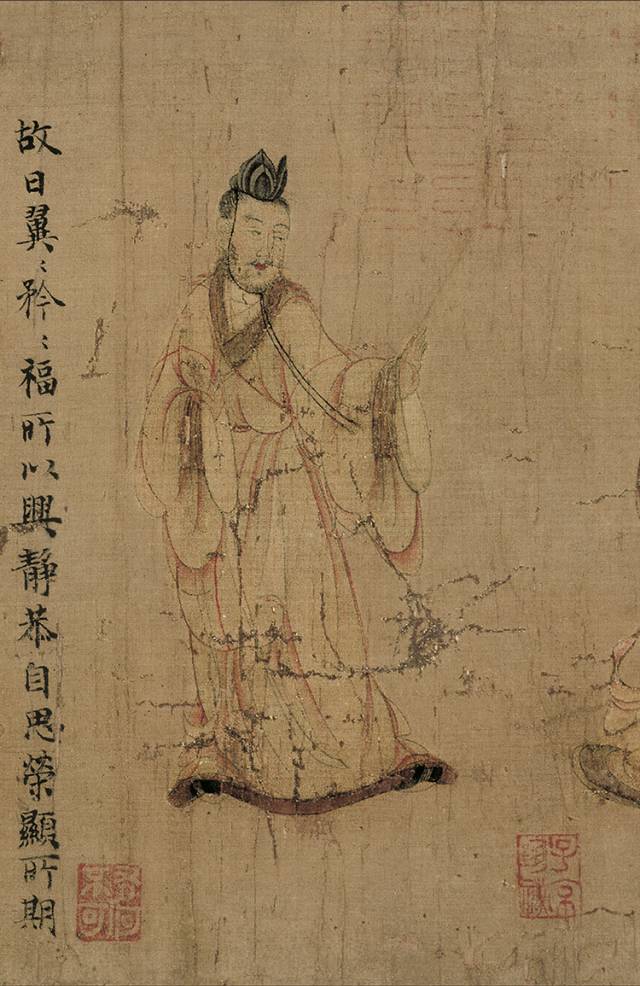 故曰翼〻矜〻福所以興静恭自思榮顯所期